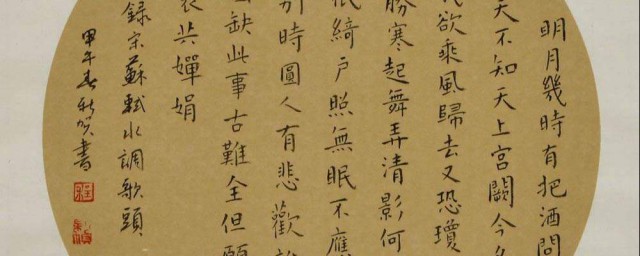 明月幾時有把酒問
天不知天上宮闕今夕
欲乘風歸去又恐瓊
勝寒起舞弄清影何
低綺戶照無眠不應
別時圓人有悲歡
缺此事古難全但願
裏共嬋娟
錄宋蘇軾水調歌頭
甲午春秋賀書
程